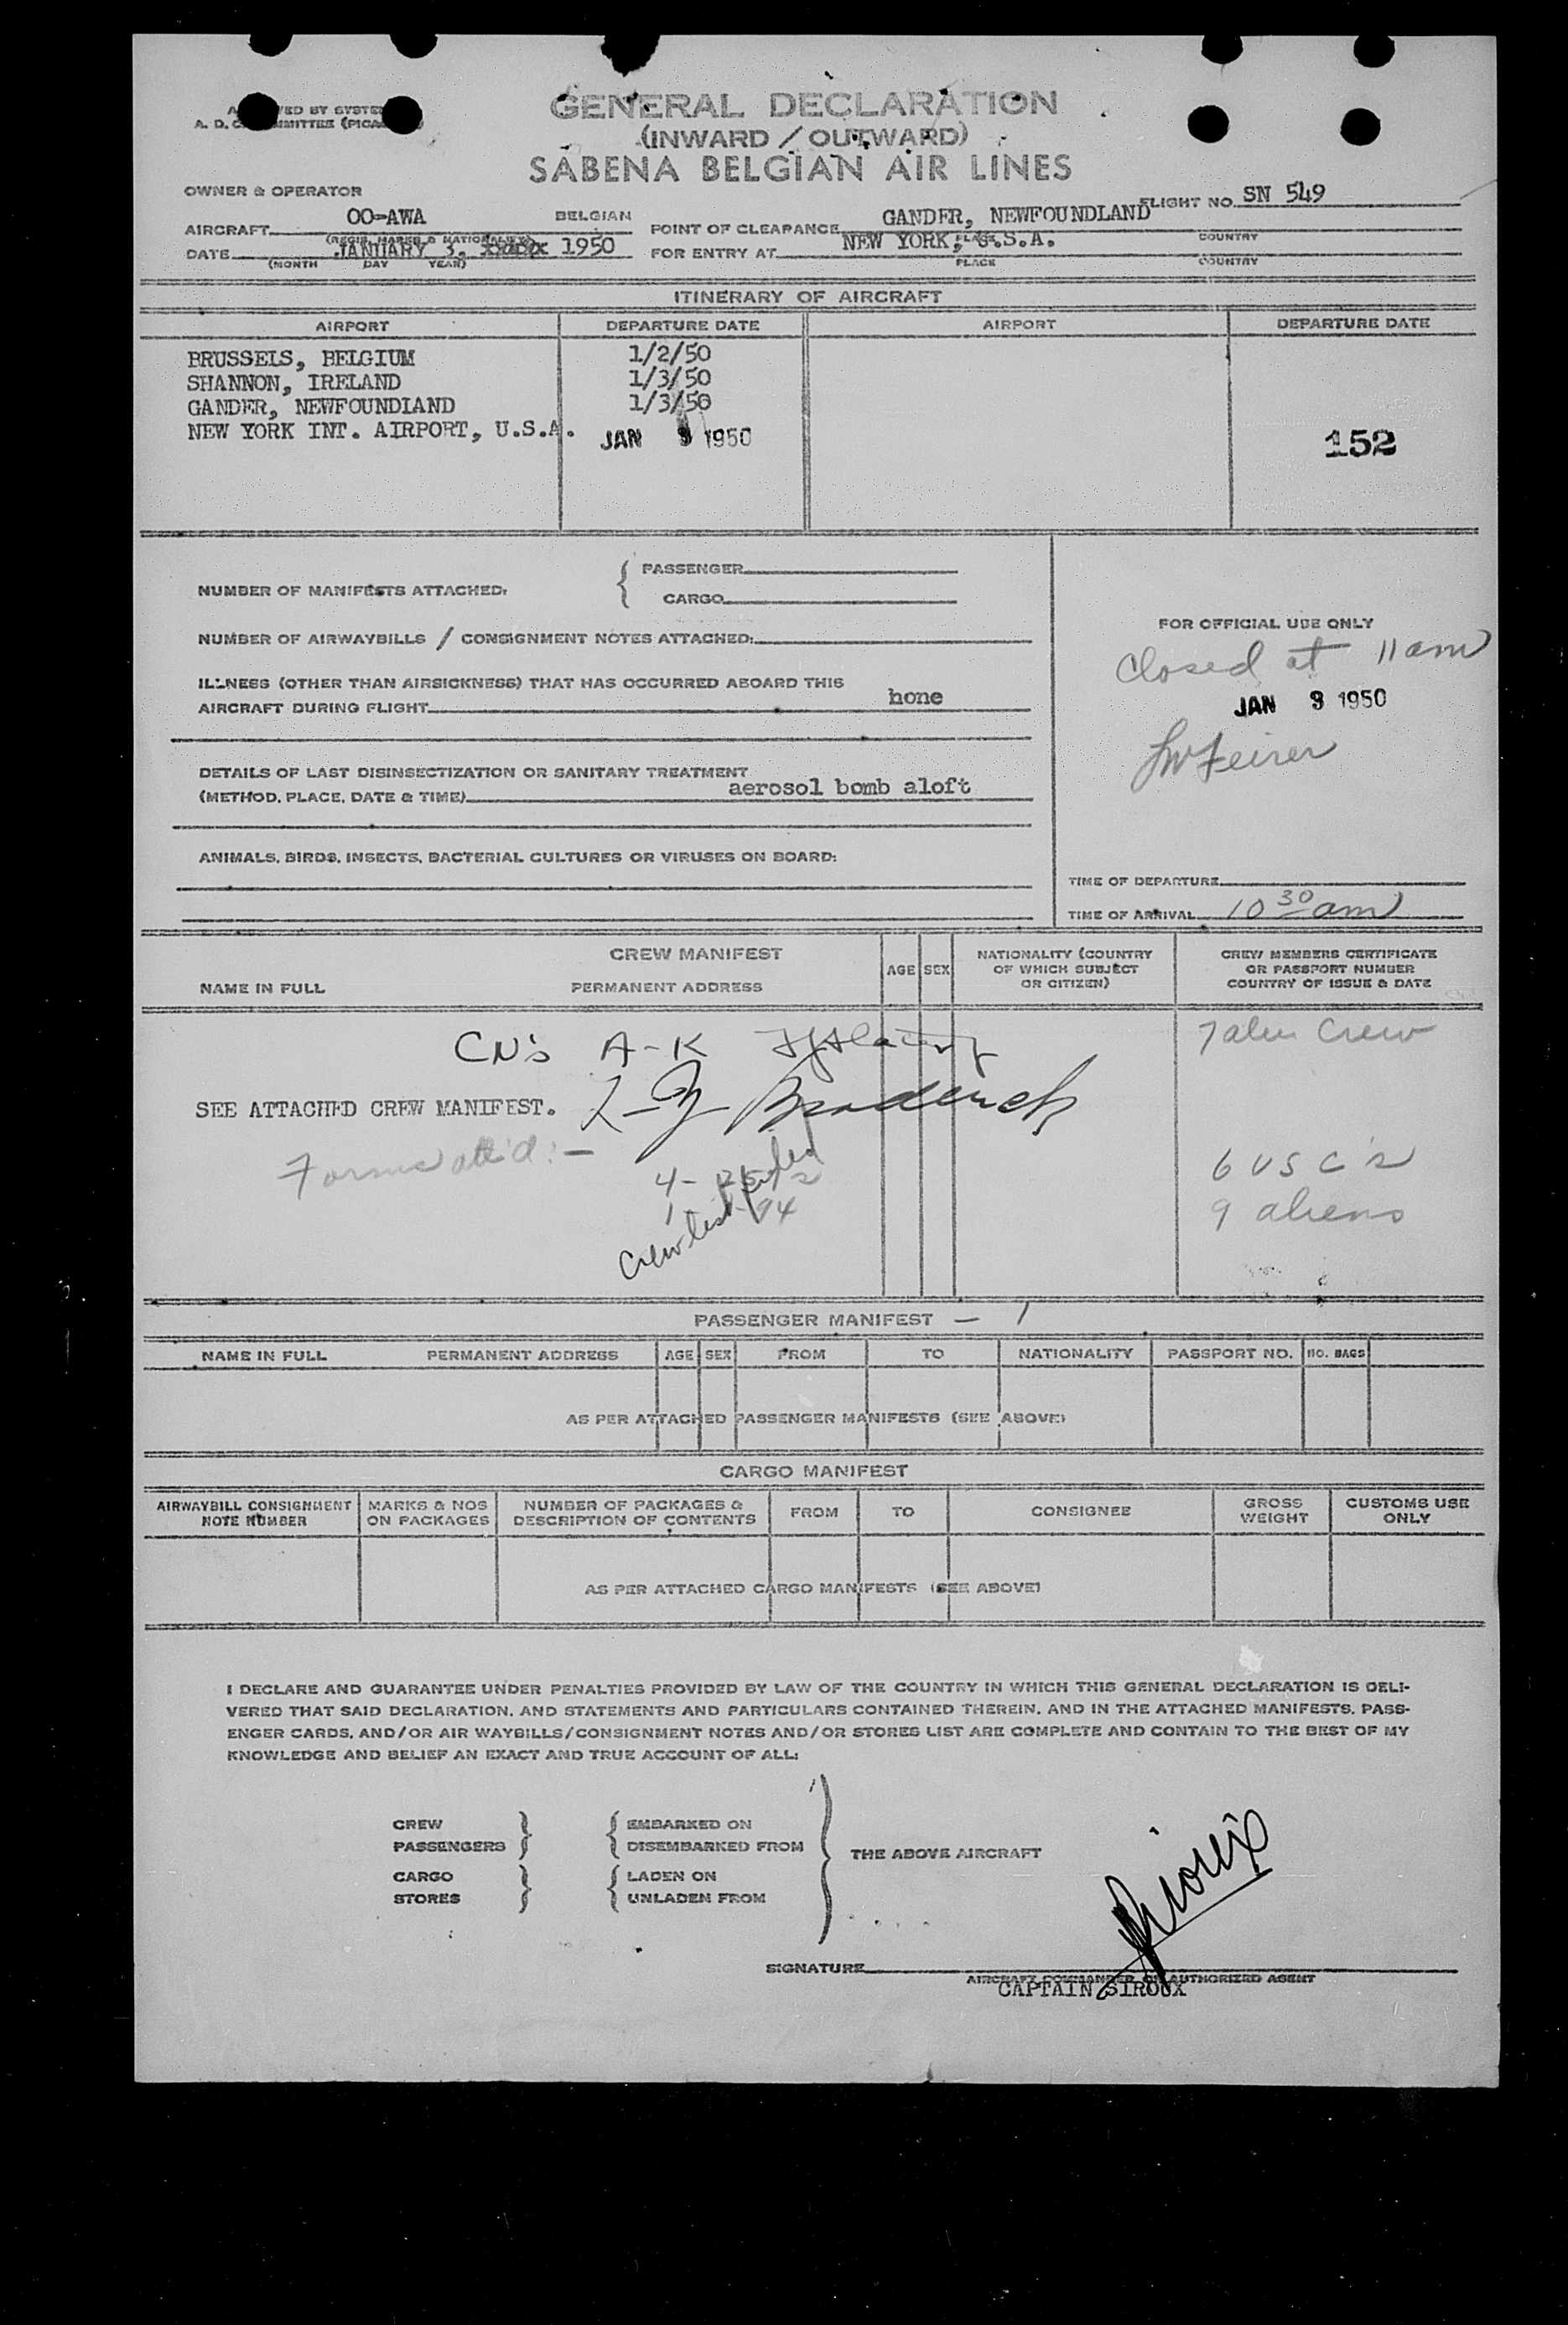 GENERAL DECLARATION
(INWARD / OUTWARD)
SABENA BELGIAN AIR LINES
A. D. C.
OWNER & OPERATOR
FLIGHT NO. SN 549
AIRCRAFT OO-AWA BELGIAN
(REGIS. MARKS & NATIONALITY)
POINT OF CLEARANCE GANDER, NEWFOUNDLAND
PLACE COUNTRY
DATE JANUARY 3, 1950
(MONTH DAY YEAR)
FOR ENTRY AT NEW YORK, U.S.A.
PLACE COUNTRY
ITINERARY OF AIRCRAFT
AIRPORT DEPARTURE DATE AIRPORT DEPARTURE DATE
BRUSSELS, BELGIUM 1/2/50
SHANNON, IRELAND 1/3/50
GANDER, NEWFOUNDLAND 1/3/50
NEW YORK INT. AIRPORT, U.S.A. JAN 3 1950
152
NUMBER OF MANIFESTS ATTACHED: { PASSENGER
CARGO
NUMBER OF AIRWAYBILLS / CONSIGNMENT NOTES ATTACHED:
ILLNESS (OTHER THAN AIRSICKNESS) THAT HAS OCCURRED ABOARD THIS
AIRCRAFT DURING FLIGHT hone
DETAILS OF LAST DISINSECTIZATION OR SANITARY TREATMENT
(METHOD, PLACE, DATE & TIME) aerosol bomb aloft
ANIMALS, BIRDS, INSECTS, BACTERIAL CULTURES OR VIRUSES ON BOARD:
FOR OFFICIAL USE ONLY
Closed at 11 am
JAN 3 1950
TIME OF DEPARTURE
TIME OF ARRIVAL 10 30 am
CREW MANIFEST
NAME IN FULL PERMANENT ADDRESS AGE SEX
NATIONALITY (COUNTRY
OF WHICH SUBJECT
OR CITIZEN)
CREW MEMBERS CERTIFICATE
OR PASSPORT NUMBER
COUNTRY OF ISSUE & DATE
CN's A-K
7 alien Crew
SEE ATTACHED CREW MANIFEST. L-Z Broderick
Forms att'd:-
4-
Crew list
6 USC's
9 aliens
PASSENGER MANIFEST — 1
NAME IN FULL PERMANENT ADDRESS AGE SEX FROM TO NATIONALITY PASSPORT NO. NO. BAGS
AS PER ATTACHED PASSENGER MANIFESTS (SEE ABOVE)
CARGO MANIFEST
AIRWAYBILL CONSIGNMENT
NOTE NUMBER
MARKS & NOS
ON PACKAGES
NUMBER OF PACKAGES &
DESCRIPTION OF CONTENTS
FROM TO CONSIGNEE
GROSS
WEIGHT
CUSTOMS USE
ONLY
AS PER ATTACHED CARGO MANIFESTS (SEE ABOVE)
I DECLARE AND GUARANTEE UNDER PENALTIES PROVIDED BY LAW OF THE COUNTRY IN WHICH THIS GENERAL DECLARATION IS DELI-
VERED THAT SAID DECLARATION, AND STATEMENTS AND PARTICULARS CONTAINED THEREIN, AND IN THE ATTACHED MANIFESTS, PASS-
ENGER CARDS, AND/OR AIR WAYBILLS/CONSIGNMENT NOTES AND/OR STORES LIST ARE COMPLETE AND CONTAIN TO THE BEST OF MY
KNOWLEDGE AND BELIEF AN EXACT AND TRUE ACCOUNT OF ALL:
CREW EMBARKED ON
PASSENGERS DISEMBARKED FROM
THE ABOVE AIRCRAFT
CARGO LADEN ON
STORES UNLADEN FROM
Siroux
SIGNATURE
AIRCRAFT COMMANDER OR AUTHORIZED AGENT
CAPTAIN SIROUX